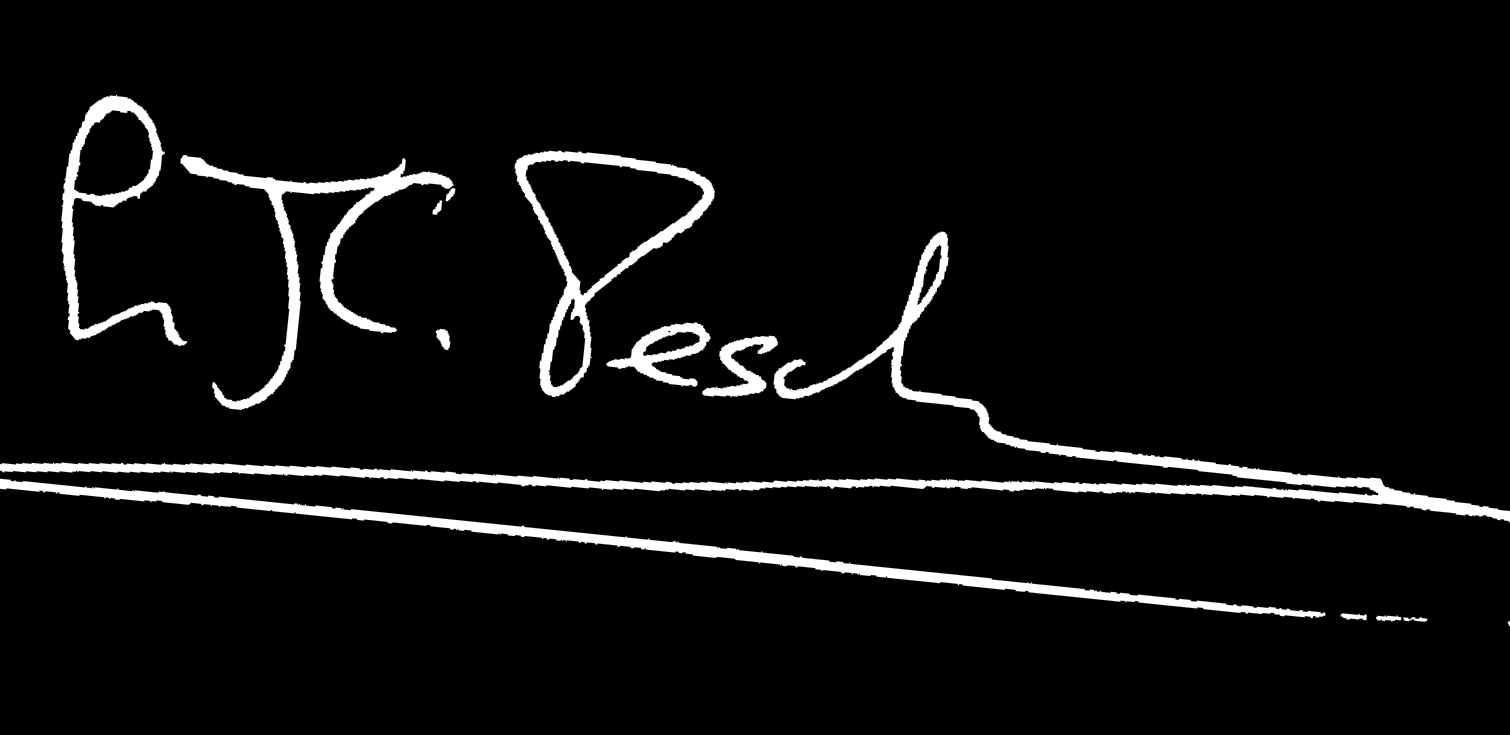 P.J.C. Pesch